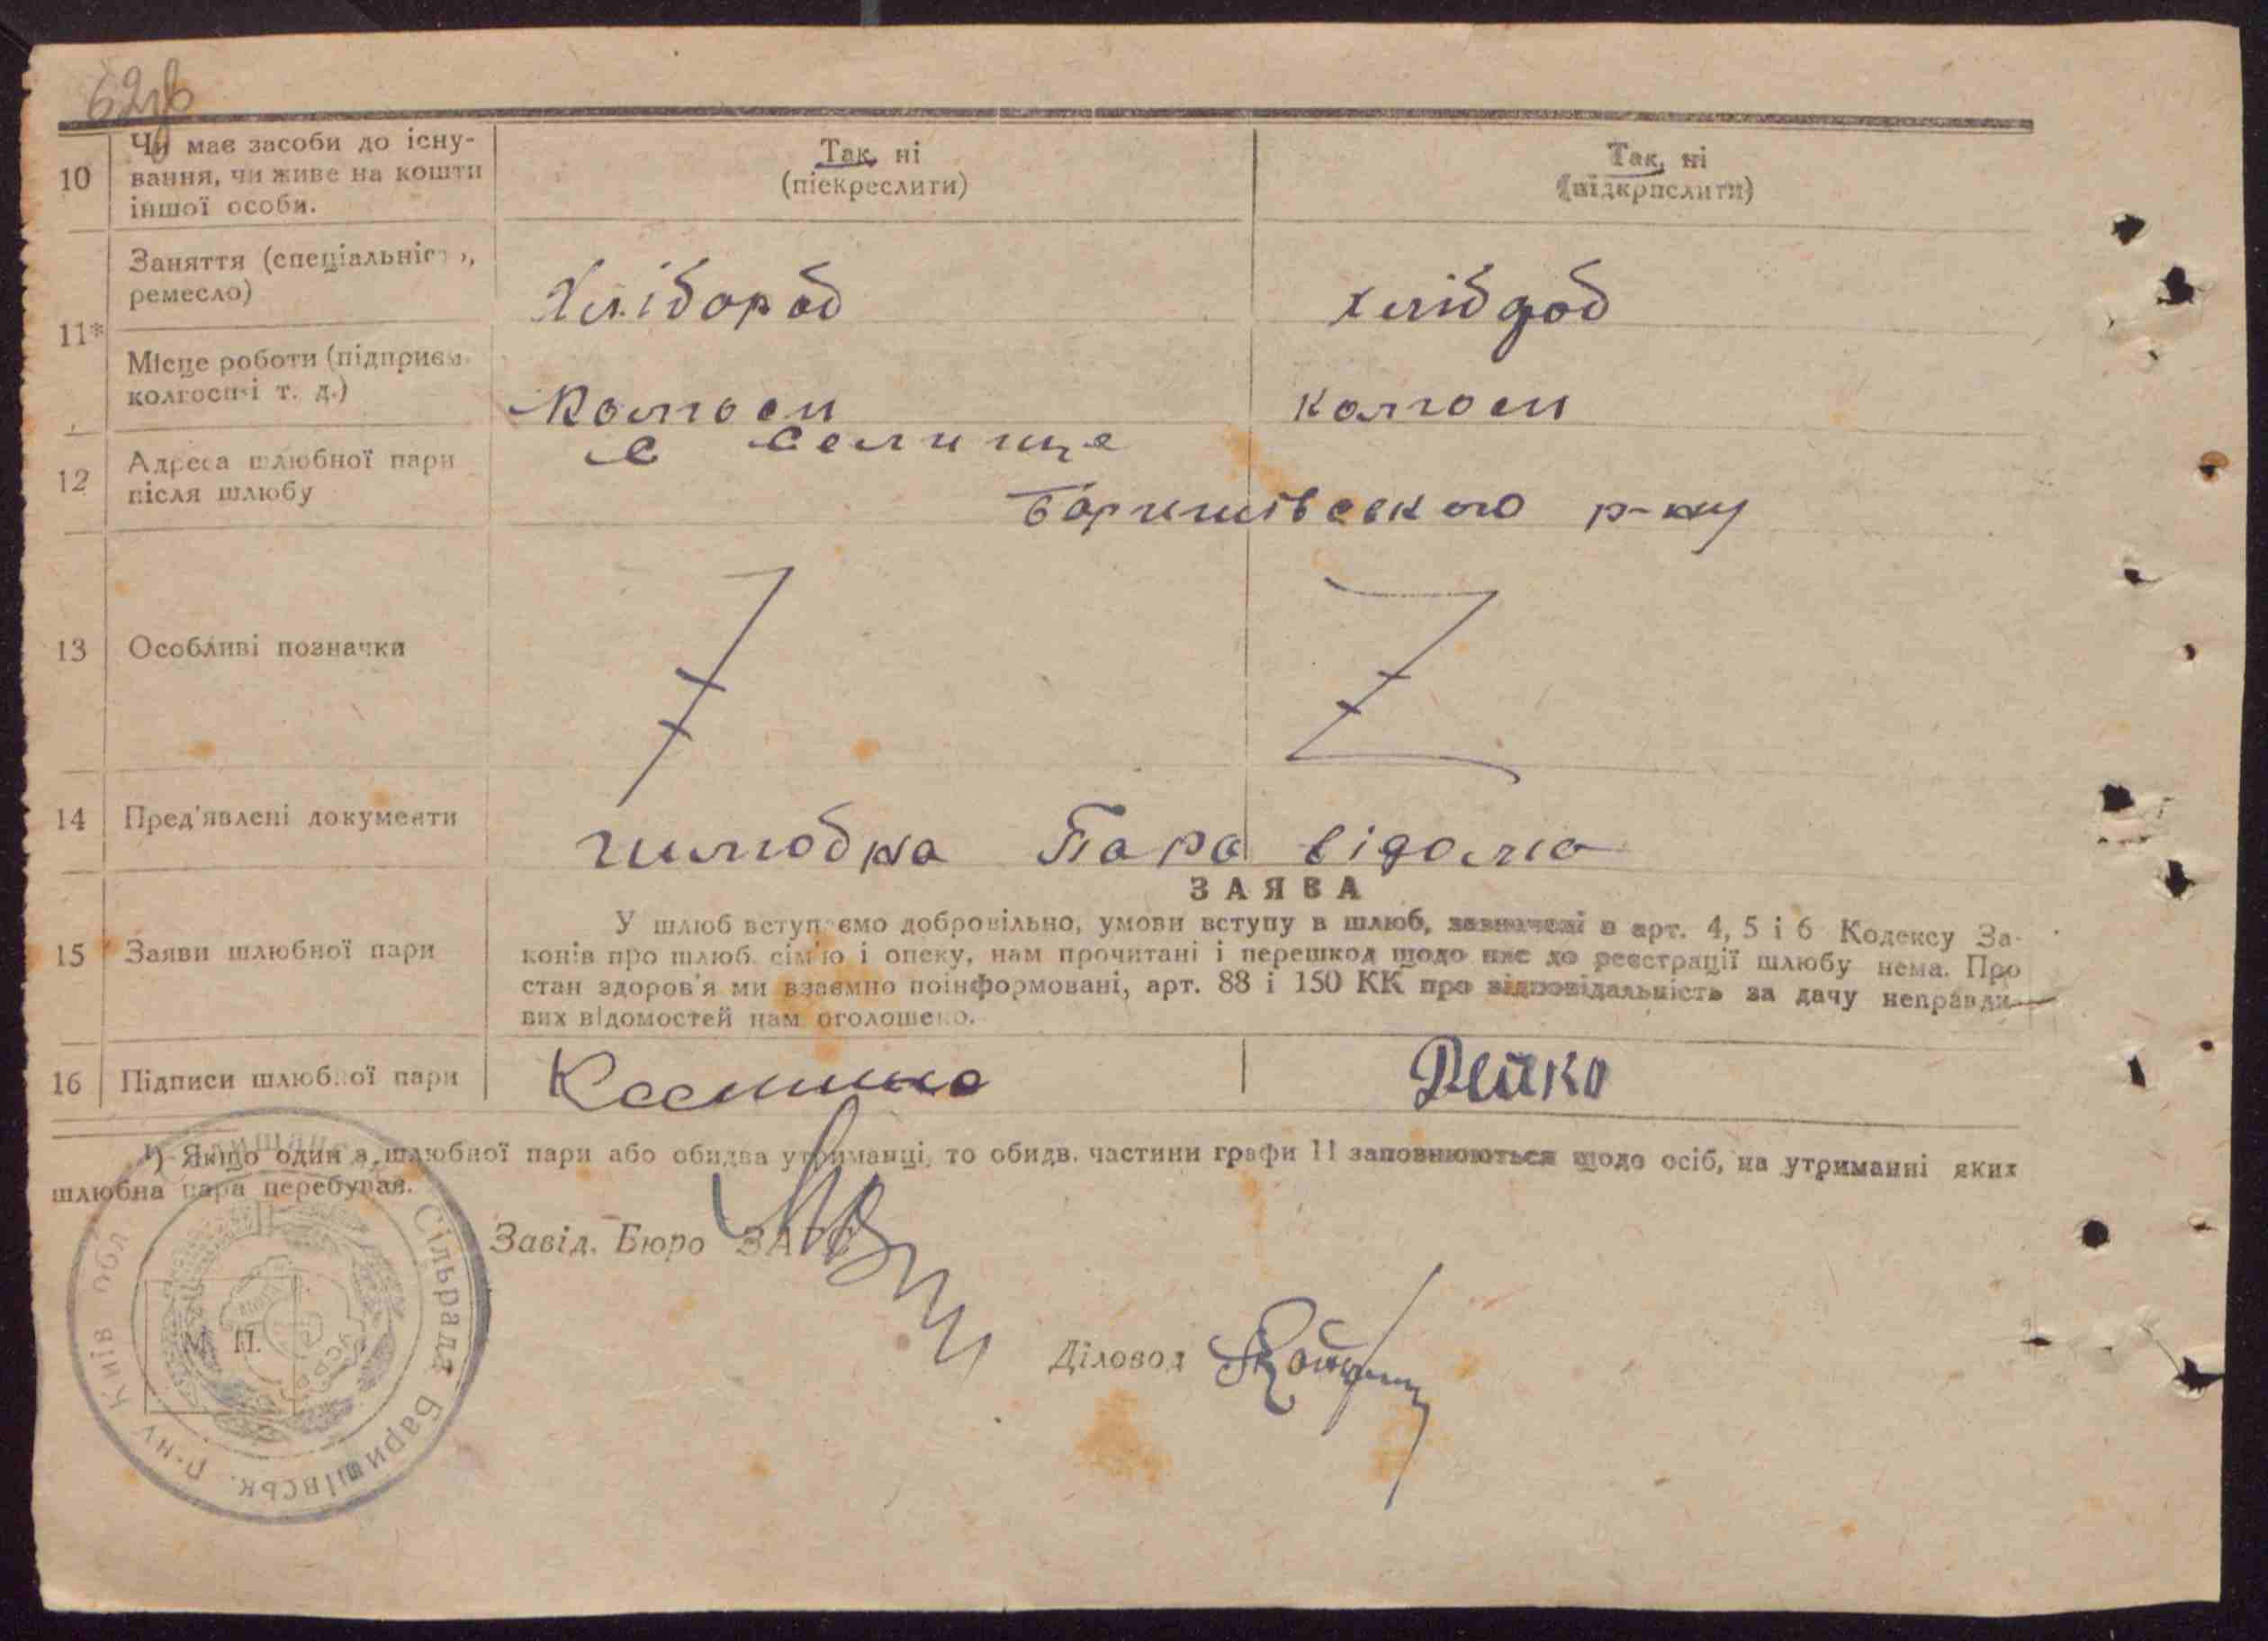 62зв
10
Чи має засоби до існу-
вання, чи живе на кошти
іншої особи.
Так, ні
(піекреслити)
Так, ні
(підкрпслити)
11*
Заняття (спеціальніст ь,
ремесло)
Хлібороб
хлібороб
Місце роботи (підприєм.
колгосп і т. д.)
Колгосп
колгосп
12
Адреса шлюбної пари
після шлюбу
с Селище
Баришівського р-ну
13
Особливі позначки
14
Пред'явлені документи
шлюбна Пара відома
15
Заяви шлюбної пари
ЗАЯВА
У шлюб вступаємо добровільно, умови вступу в шлюб, зазначені в арт. 4, 5 і 6 Кодексу За-
конів про шлюб сім'ю і опеку, нам прочитані і перешкод щодо нас до реєстрації шлюбу нема. Про
стан здоров'я ми взаємно поінформовані, арт. 88 і 150 КК про відповідальність за дачу неправди-
вих відомостей нам оголошено.
16
Підписи шлюбної пари
Дейко
¹) Якщо один з шлюбної пари або обидва утриманці, то обидв. частини графи 11 заповнюються щодо осіб, на утриманні яких
шлюбна пара перебуває.
Завід. Бюро ЗАГС
Діловод
М. П.
Сільрада Баришівськ. р-ну Київ обл